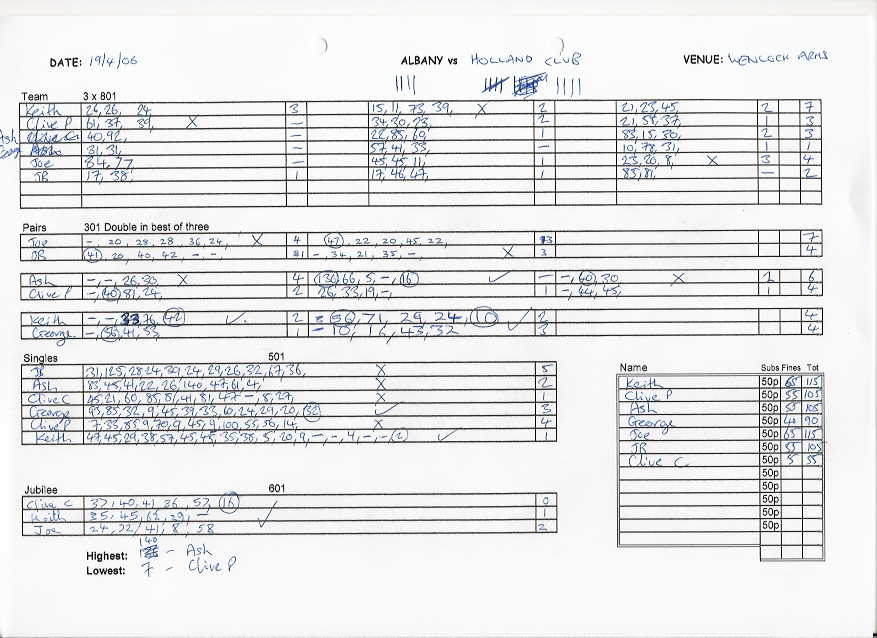 DATE: 19/4/06 ALBANY vs HOLLAND CLUB VENUE: WENLOCK ARMS
Team 3 x 801
Keith 26, 26, 24 3 15, 11, 73, 39, X 2 21, 23, 45, 2 7
Clive P 61, 37, 39, X – 34, 30, 23, 2 21, 55, 37, 1 3
Ash 40, 92, – 22, 85, 60, 1 83, 15, 30, 2 3
George 31, 31, – 57, 41, 33, – 10, 78, 31, 1 1
Joe 84, 77 – 45, 45, 11, 1 23, 20, 8, X 3 4
JR 17, 38, 1 17, 46, 47, 1 85, 81, – 2
Pairs 301 Double in best of three
Joe –, 20, 28, 28, 36, 24, X 4 (47), 22, 20, 45, 22, 3 7
JR (41), 20, 40, 42, –, – 1 –, 34, 21, 35, – X 3 4
Ash –, –, 26, 30, X 4 (136) 66, 5, –, (16) ✓ – –, (40), 30 X 2 6
Clive P –, (40) 81, 24, 2 26, 33, 19, –, 1 –, 44, 45, 1 4
Keith –, –, 33, 76, (42) ✓ 2 (50), 71, 29, 24, (10) ✓ 2 4
George –, (56), 41, 53, 1 – 10, 16, 43, 32 3 4
Singles 501
JR 31, 125, 28, 24, 30, 24, 29, 26, 32, 67, 36, X 5
Ash 83, 45, 41, 22, 26, 140, 47, 61, 4, X 2
Clive C 45, 21, 60, 85, 81, 41, 81, 47, –, 8, 27, X 1
George 93, 85, 32, 9, 45, 39, 33, 60, 24, 29, 20, (32) ✓ 3
Clive P 7, 33, 85, 9, 70, 9, 45, 9, 100, 55, 56, 14, X 4
Keith 47, 45, 29, 38, 57, 45, 45, 35, 38, 5, 20, 9, –, –, 4, –, – (2) ✓ 1
Name Subs Fines Tot
Keith 50p 65 115
Clive P 50p 55 105
Ash 50p 55 105
George 50p 40 90
Joe 50p 65 115
JR 50p 55 105
Clive C. 50p 5 55
50p
50p
50p
50p
Jubilee 601
Clive C 37, 40, 41, 36, 57, (16) 0
Keith 35, 45, 62, 29, – ✓ 1
Joe 24, 22, 41, 8, 58 2
Highest: 140 – Ash
Lowest: 7 – Clive P